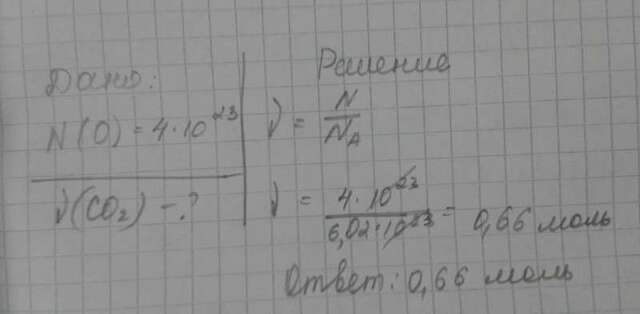 Дано:
N(O) = 4·10²³
ν(CO₂) - ?
Решение
ν = N/Nₐ
ν = 4·10²³/6,02·10²³ = 0,66 моль
Ответ: 0,66 моль